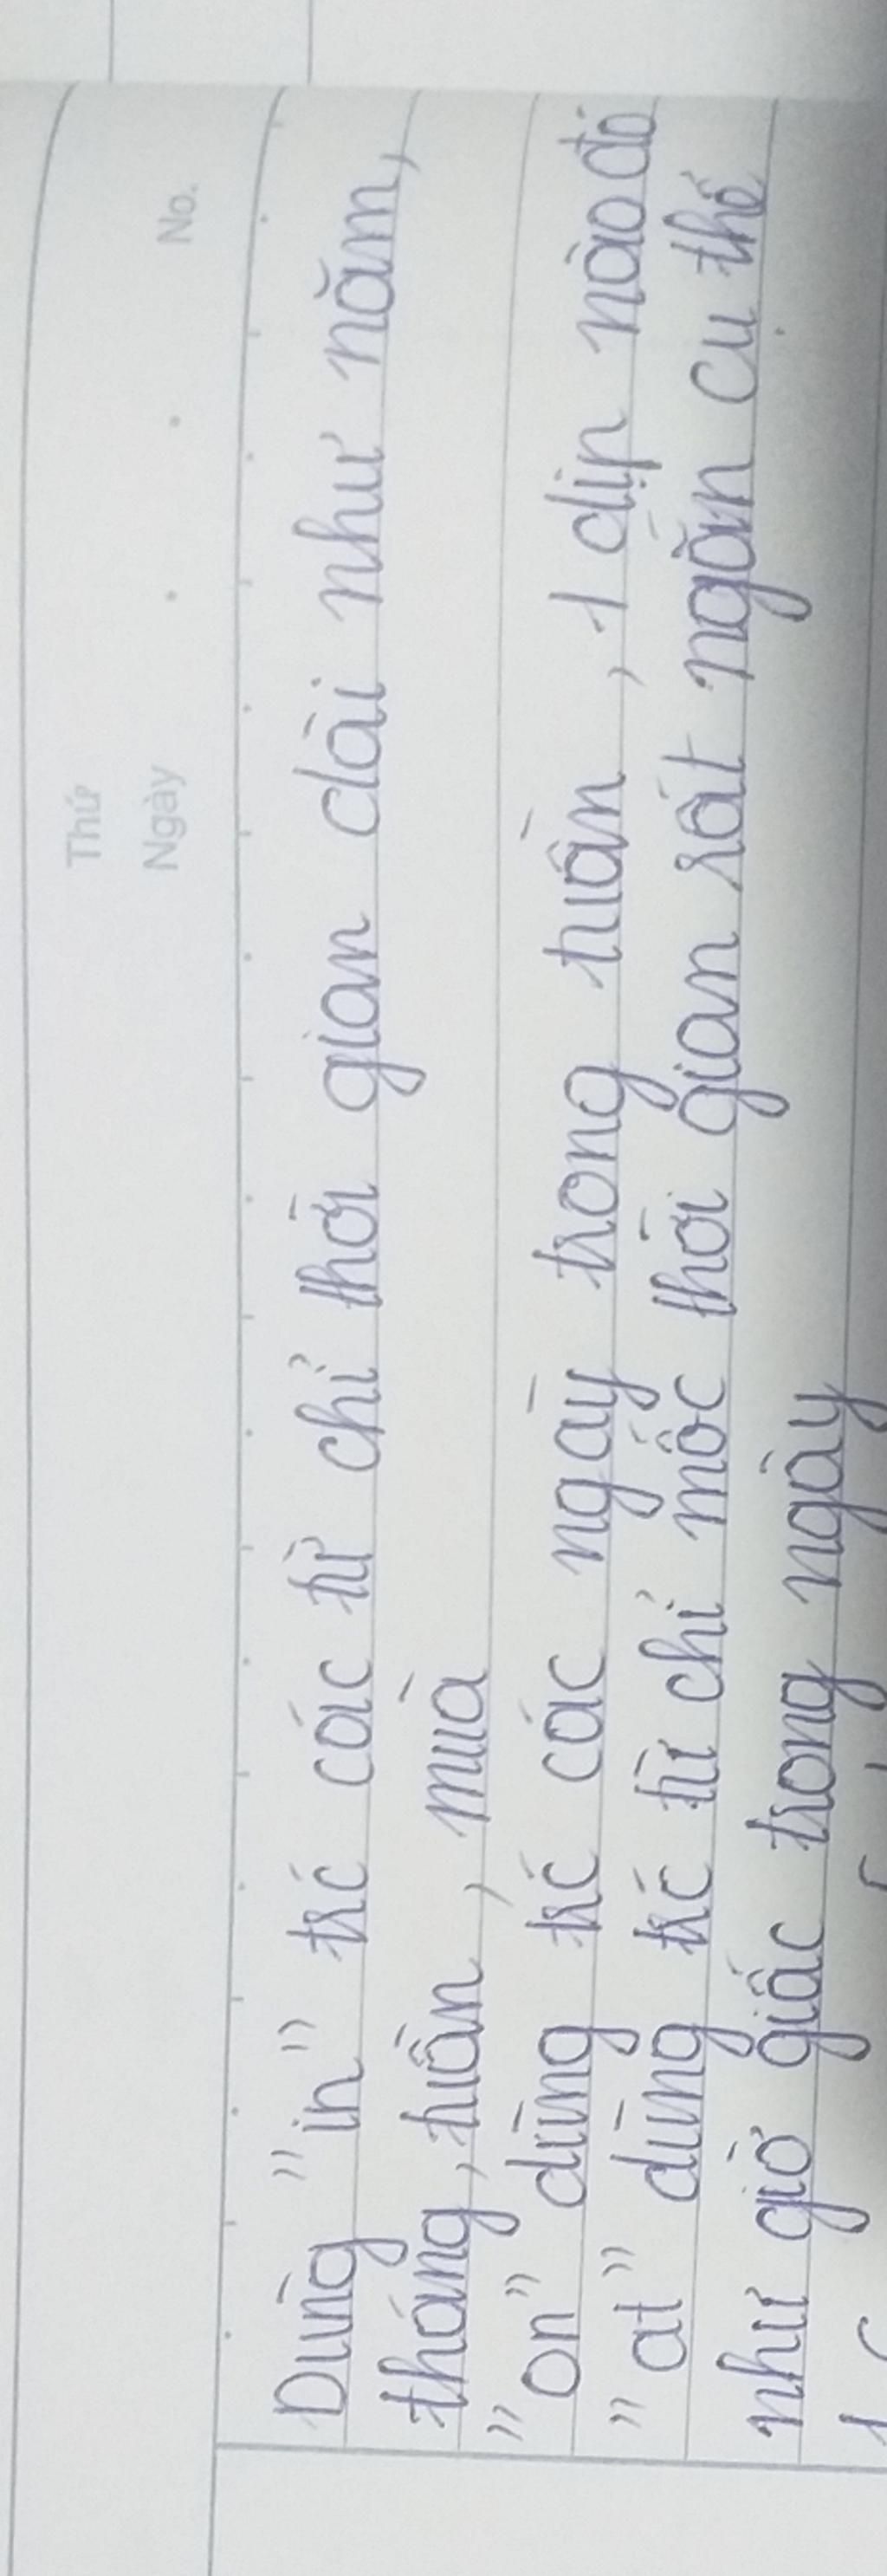 Thứ
Ngày . . No.
Dùng "in" trc các từ chỉ thời gian dài như năm,
tháng, tuần, mùa
"on" dùng trc các ngày trong tuần, 1 dịp nào đó
"at" dùng trc từ chỉ mốc thời gian rất ngắn cụ thể
như giờ giấc trong ngày